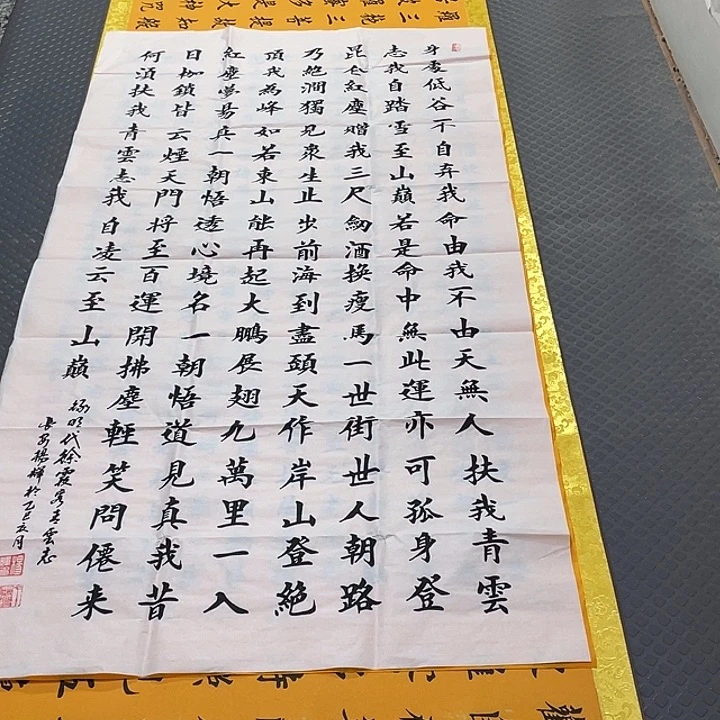 身處低谷不自弃我命由我不由天無人扶我青雲
志我自踏雪至山巔若是命中無此運亦可孤身登
昆仑紅塵贈我三尺劒酒換瘦馬一世街世人朝路
乃絕澗獨見衆生止步前海到盡頭天作岸山登絕
頂我為峰如若東山能再起大鵬展翅九萬里一入
紅塵夢易真一朝悟透心境名一朝悟道見真我昔
日枷鎖皆云煙天門将至百運開拂塵輕笑問僊来
何須扶我青雲志我自凌云至山巔
録明代徐霞客青雲志
長安楊輝於乙巳月